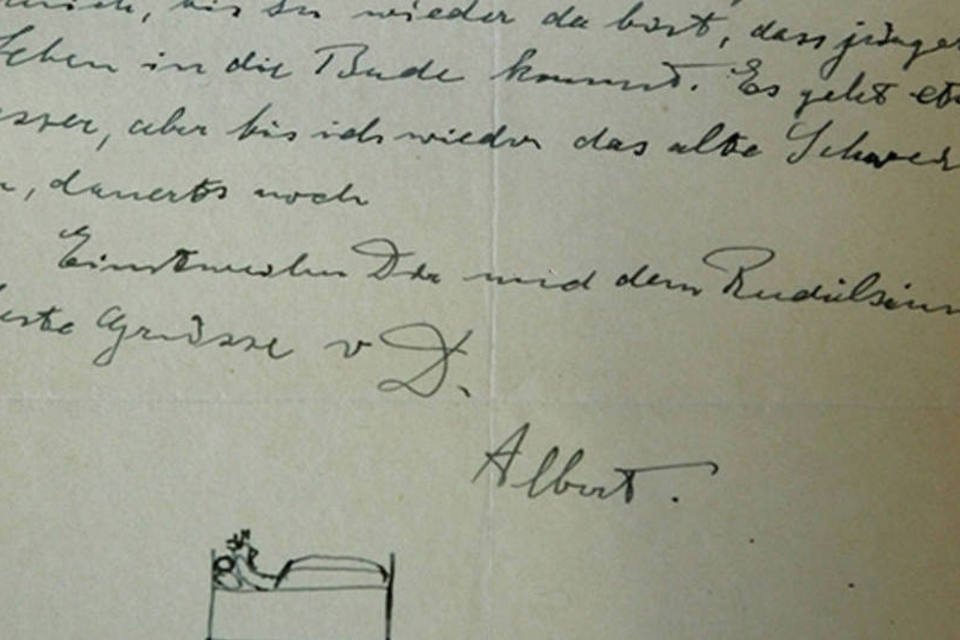 bis du wieder da bist, dass jünger
Leben in die Bude kommt. Es geht
aber bis ich wieder das alte
, dauerts noch
Einstweilen Dir und dem
beste Grüsse v D.
Albert.